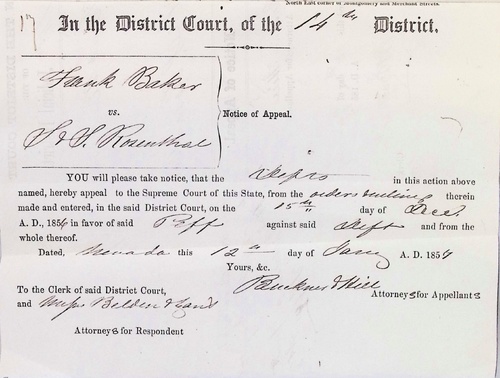 North East corner of Montgomery and Merchant Streets.
17
In the District Court, of the 14th District,
Frank Baker
vs.
S & S. Rosenthal
Notice of Appeal.
YOU will please take notice, that the Defts in this action above
named, hereby appeal to the Supreme Court of this State, from the orders & ruling therein
made and entered, in the said District Court, on the 15th day of Decr
A. D., 1856 in favor of said Plff against said Deft and from the
whole thereof.
Dated, Nevada this 12th day of Jany A. D. 1857
Yours, &c.
Buckner & Hill
To the Clerk of said District Court,
Attorneys for Appellants
and Messrs Belden &
Attorneys for Respondent